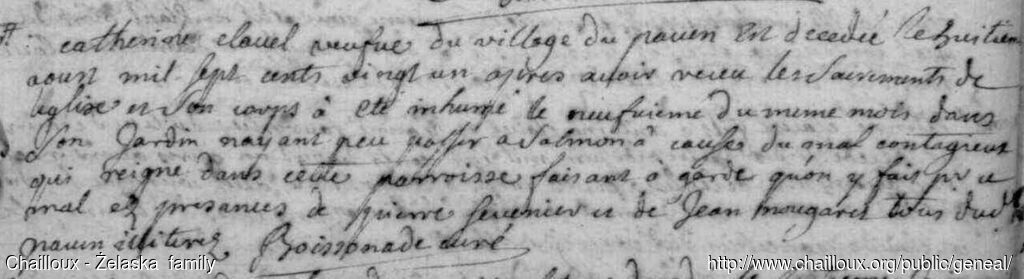 catherine clauel veufue du village du nauen est decedée le huitiem
aoust mil sept cents vingt un apres auoir receu les sacrements de
leglise et son corps à eté inhumé le neufuieme du meme mois dans
son Jardin nayant peu passer a salmon à cause du mal contagieux
qui reigne dans cette parroisse faisant a garde quon y fait pr ce
mal ez presances de pierre seuenier et de Jean nougaret tous dud
nauen illiterez Boissonade curé
Chailloux - Želaska family
http://www.chailloux.org/public/geneal/